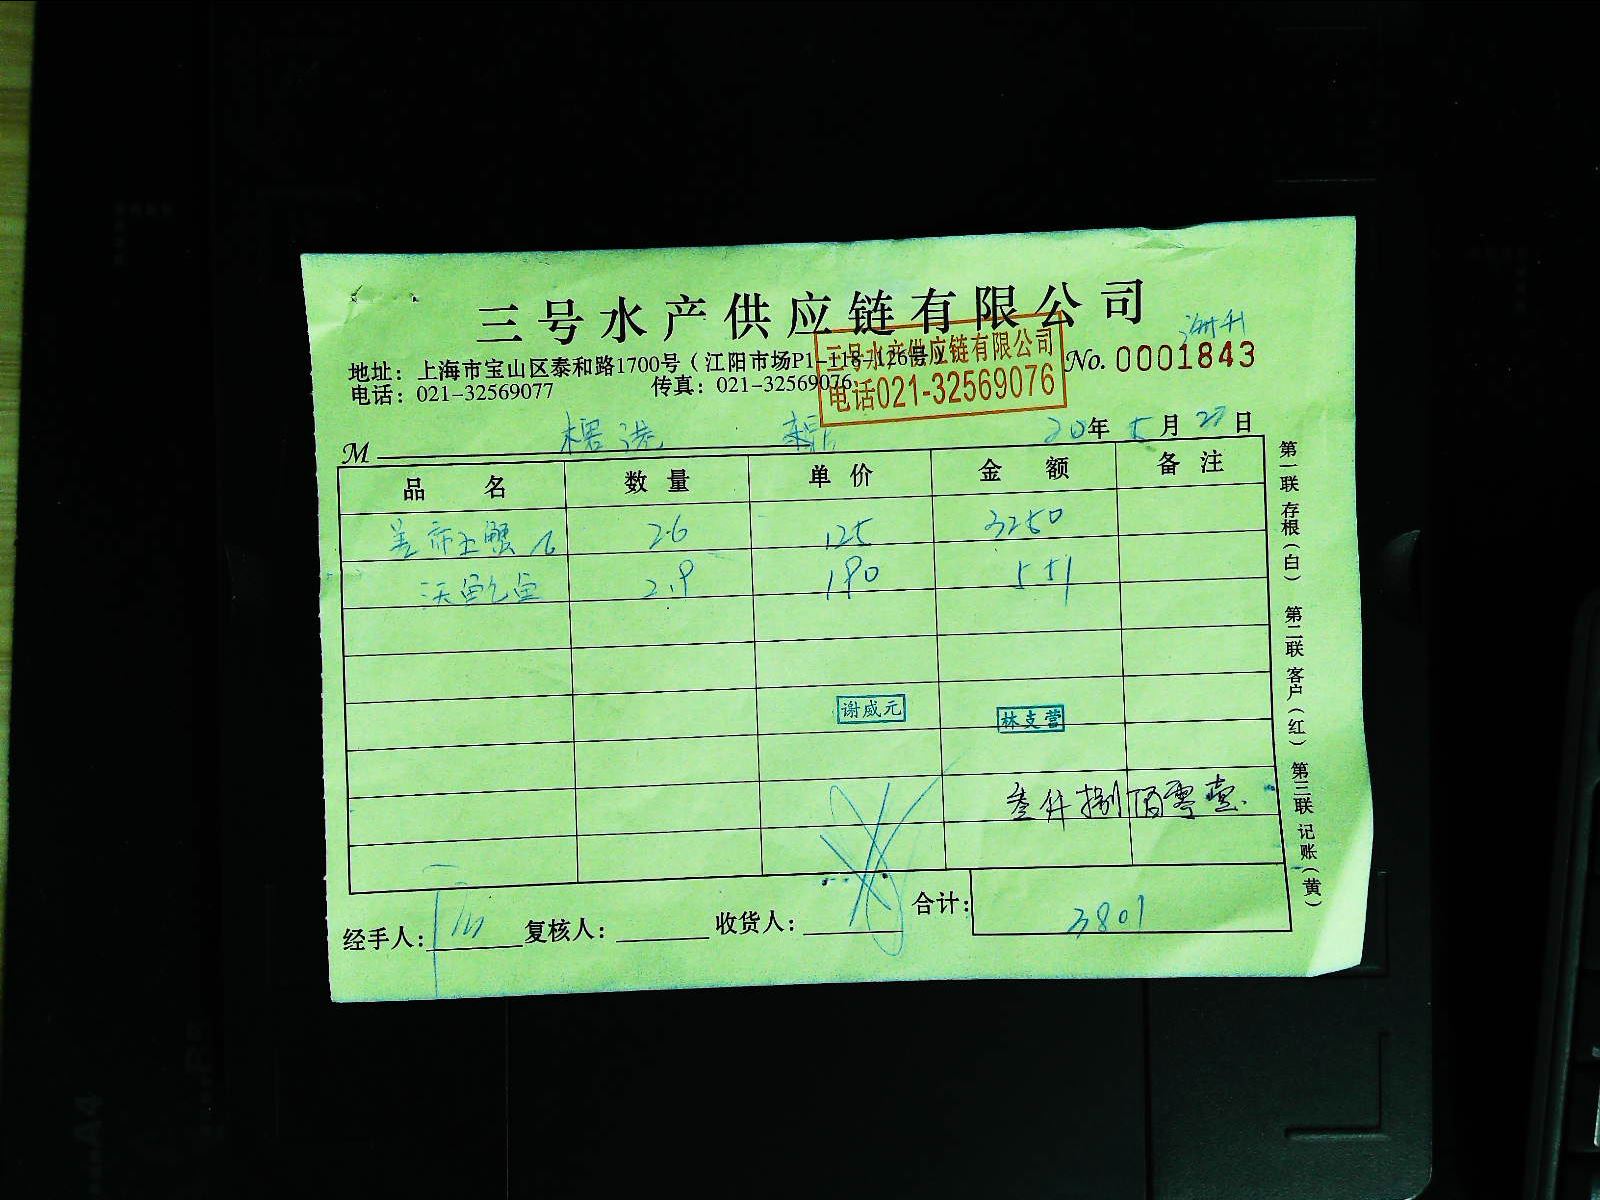 三号水产供应链有限公司
地址：上海市宝山区泰和路1700号（江阳市场P1-118-126号）
No. 0001843
电话：021-32569077 传真：021-32569076
三号水产供应链有限公司
电话021-32569076
M 20年5月27日
品名 数量 单价 金额 备注
帝王蟹 26 125 3250
2.9 190 551
谢威元 林支营
叁仟捌佰零壹
经手人： 复核人： 收货人： 合计： 3801
第一联 存根（白） 第二联 客户（红） 第三联 记账（黄）